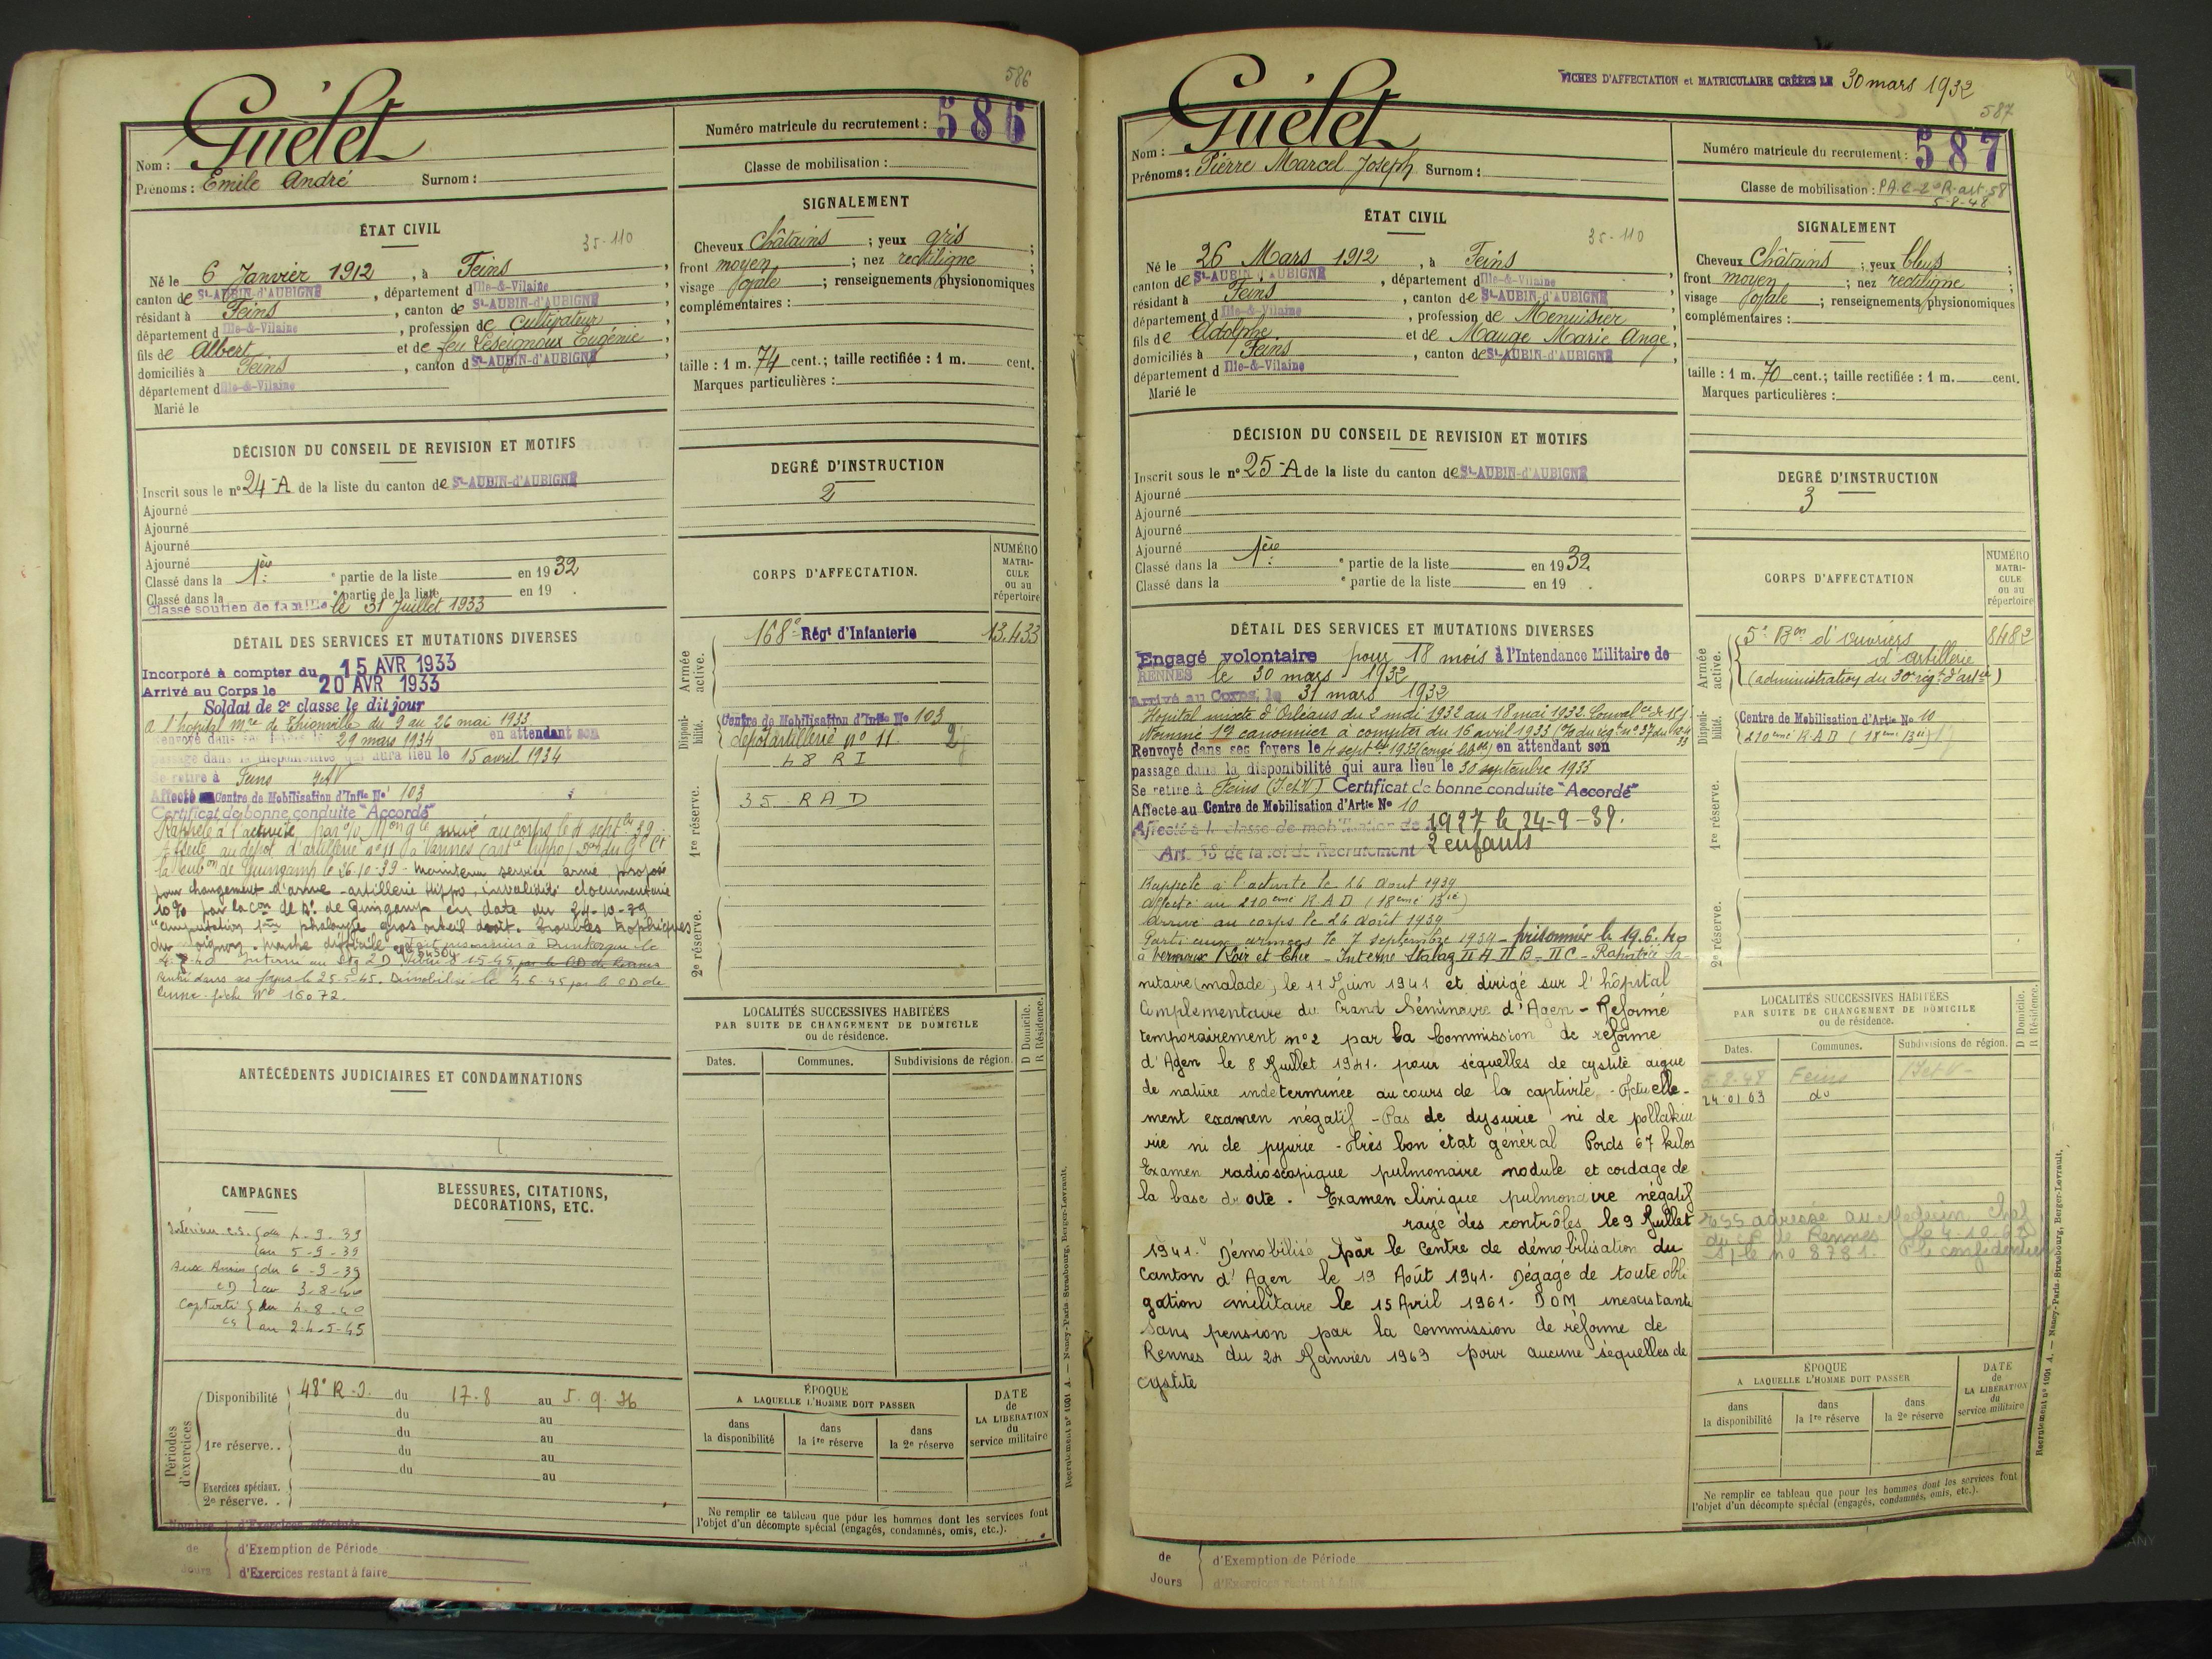 586
Nom : Guélet
Prénoms : Emile André Surnom :
Numéro matricule du recrutement : 586
Classe de mobilisation :
ÉTAT CIVIL
35-110
Né le 6 Janvier 1912, à Feins,
canton de St-AUBIN-d'AUBIGNÉ, département d Ille-&-Vilaine,
résidant à Feins, canton de St-AUBIN-d'AUBIGNÉ,
département d Ille-&-Vilaine, profession de Cultivateur,
fils de Albert et de feu Eugénie,
domiciliés à Feins, canton d St-AUBIN-d'AUBIGNÉ,
département d Ille-&-Vilaine
Marié le
SIGNALEMENT
Cheveux Châtains ; yeux gris ;
front moyen ; nez rectiligne ;
visage ovale ; renseignements physionomiques
complémentaires :
taille : 1 m. 74 cent. ; taille rectifiée : 1 m. cent.
Marques particulières :
DÉCISION DU CONSEIL DE REVISION ET MOTIFS
Inscrit sous le n° 24-A de la liste du canton de St-AUBIN-d'AUBIGNÉ
Ajourné
Ajourné
Ajourné
Ajourné
Classé dans la 1ère partie de la liste en 1932
Classé dans la e partie de la liste en 19 .
Classé soutien de famille le 31 Juillet 1933
DEGRÉ D'INSTRUCTION
2
DÉTAIL DES SERVICES ET MUTATIONS DIVERSES
Incorporé à compter du 15 AVR 1933
Arrivé au Corps le 20 AVR 1933
Soldat de 2e classe le dit jour
A l'hopital mre de Thionville du 9 au 26 mai 1933.
Renvoyé dans ses foyers le 29 mars 1934 en attendant son
passage dans la disponibilité qui aura lieu le 15 avril 1934
Se retire à Feins I&V
Affecté au Centre de Mobilisation d'Infie No 103
Certificat de bonne conduite "Accordé"
Rappelé à l'activité par o/o Mon gle arrivé au corps le 4 septbre 39
Affecté au dépot d'artillerie n° 11 à Vannes
la sub on de Guingamp le 26-10-39 - maintenu service armé, proposé
pour changement d'arme - artillerie Hippo, invalidité documentaire
10% par la Con de R. de Guingamp en date du 24-10-39
"amputation 1ère phalange gros orteil droit. Troubles trophiques
du moignon. marche difficile" fait prisonnier à Dunkerque le
4-6-40 Interné au Stg 2D libéré 8 15-45 par le CD de Rennes
Rentré dans ses foyers le 25-5-45. Démobilisé le 4-6-45 par le CD de
fiche No 16072.
CORPS D'AFFECTATION.
NUMÉRO MATRICULE ou au répertoire
Armée active.
168e Régt d'Infanterie 13.433
Disponibilité.
Centre de Mobilisation d'Infie No 103
dépot artillerie n° 11.
48 RI
1re réserve.
35 RAD
2e réserve.
LOCALITÉS SUCCESSIVES HABITÉES
PAR SUITE DE CHANGEMENT DE DOMICILE
ou de résidence.
D Domicile. R Résidence.
Dates. Communes. Subdivisions de région.
ANTÉCÉDENTS JUDICIAIRES ET CONDAMNATIONS
CAMPAGNES
Intérieur c.s. du 4-9-39
au 5-9-39
Aux Armées du 6-9-39
CD au 3-8-40
Captivité du 4-8-40
cs au 24-5-45
BLESSURES, CITATIONS,
DÉCORATIONS, ETC.
Périodes d'exercices
Disponibilité 48e R.I. du 17-8 au 5.9.36
du au
1re réserve. . du au
du au
du au
Exercices spéciaux.
2e réserve. .
Nombre d'Exercices effectués
de d'Exemption de Période
Jours d'Exercices restant à faire
ÉPOQUE
A LAQUELLE L'HOMME DOIT PASSER
dans la disponibilité dans la 1re réserve dans la 2e réserve
DATE de LA LIBÉRATION du service militaire
Ne remplir ce tableau que pour les hommes dont les services font
l'objet d'un décompte spécial (engagés, condamnés, omis, etc.).
Recrutement n° 1001 A. — Nancy-Paris-Strasbourg, Berger-Levrault.
FICHES D'AFFECTATION et MATRICULAIRE CRÉÉES LE 30 mars 1932
587
Nom : Guélet
Prénoms : Pierre Marcel Joseph Surnom :
Numéro matricule du recrutement : 587
Classe de mobilisation : P.A.C-2e R-art.58
5-8-48
ÉTAT CIVIL
35-110
Né le 26 Mars 1912, à Feins,
canton de St-AUBIN-d'AUBIGNÉ, département d Ille-&-Vilaine,
résidant à Feins, canton de St-AUBIN-d'AUBIGNÉ,
département d Ille-&-Vilaine, profession de Menuisier,
fils de Adolphe et de Mauge Marie Ange,
domiciliés à Feins, canton de St-AUBIN-d'AUBIGNÉ,
département d Ille-&-Vilaine
Marié le
SIGNALEMENT
Cheveux Châtains ; yeux bleus ;
front moyen ; nez rectiligne ;
visage ovale ; renseignements physionomiques
complémentaires :
taille : 1 m. 70 cent. ; taille rectifiée : 1 m. cent.
Marques particulières :
DÉCISION DU CONSEIL DE REVISION ET MOTIFS
Inscrit sous le n° 25-A de la liste du canton de St-AUBIN-d'AUBIGNÉ
Ajourné
Ajourné
Ajourné
Ajourné
Classé dans la 1ère partie de la liste en 1932
Classé dans la e partie de la liste en 19 .
DEGRÉ D'INSTRUCTION
3
DÉTAIL DES SERVICES ET MUTATIONS DIVERSES
Engagé volontaire pour 18 mois à l'Intendance Militaire de
RENNES le 30 mars 1932
Arrivé au Corps le 31 mars 1932
Hopital mixte d'Orléans du 2 mai 1932 au 18 mai 1932. Convalce de 15 j
Nommé 1er canonnier à compter du 16 avril 1933
Renvoyé dans ses foyers le 4 septbre 1933 (congé libble) en attendant son
passage dans la disponibilité qui aura lieu le 30 septembre 1933
Se retire à Feins (I.et.V.) Certificat de bonne conduite "Accordé"
Affecté au Centre de Mobilisation d'Artie No 10
Affecté à la classe de mobilisation de 1927 le 24-9-39.
Art. 58 de la loi de Recrutement 2 enfants
Rappelé à l'activité le 26 Aout 1939
Affecté au 210ème R.A.D (18ème Bie)
Arrivé au corps le 26 Août 1939
Parti aux armées le 7 septembre 1939 - prisonnier le 19.6.40
à Vernoux Loir et Cher - Interné Stalag II A II B - II C - Rapatrié sa-
nitaire (malade) le 11 Juin 1941 et dirigé sur l'hôpital
Complémentaire du Grand Séminaire d'Agen - Réformé
temporairement n°2 par la Commission de réforme
d'Agen le 8 Juillet 1941. pour séquelles de cystite aigue
de nature indéterminée au cours de la captivité - Actuelle-
ment examen négatif - Pas de dysurie ni de pollakiu
rie ni de pyurie - très bon état général Poids 67 kilos
Examen radioscopique pulmonaire nodule et cordage de
la base droite. Examen clinique pulmonaire négatif
rayé des contrôles le 9 Juillet
1941. Démobilisé par le Centre de démobilisation du
Canton d'Agen le 19 Août 1941. Dégagé de toute obli
gation militaire le 15 Avril 1961. DOM inexistante
sans pension par la Commission de réforme de
Rennes du 24 Janvier 1963 pour aucune séquelles de
cystite
CORPS D'AFFECTATION
NUMÉRO MATRICULE ou au répertoire
Armée active.
5e Bon d'ouvriers 8482
d'artillerie
(administration du 30e régt d'artie)
Disponibilité.
Centre de Mobilisation d'Artie No 10
210ème R.A.D (18ème Bie)
1re réserve.
2e réserve.
LOCALITÉS SUCCESSIVES HABITÉES
PAR SUITE DE CHANGEMENT DE DOMICILE
ou de résidence.
D Domicile. R Résidence.
Dates. Communes. Subdivisions de région.
5-8-48 Feins I et V-
24 01 63 do
adressé au Médecin Chef
du CR de Rennes le 4.10.62
no 8781. confidentiel
ÉPOQUE
A LAQUELLE L'HOMME DOIT PASSER
dans la disponibilité dans la 1re réserve dans la 2e réserve
DATE de LA LIBÉRATION du service militaire
Ne remplir ce tableau que pour les hommes dont les services font
l'objet d'un décompte spécial (engagés, condamnés, omis, etc.).
de d'Exemption de Période
Jours d'Exercices restant à faire
Recrutement n° 1001 A. — Nancy-Paris-Strasbourg, Berger-Levrault.